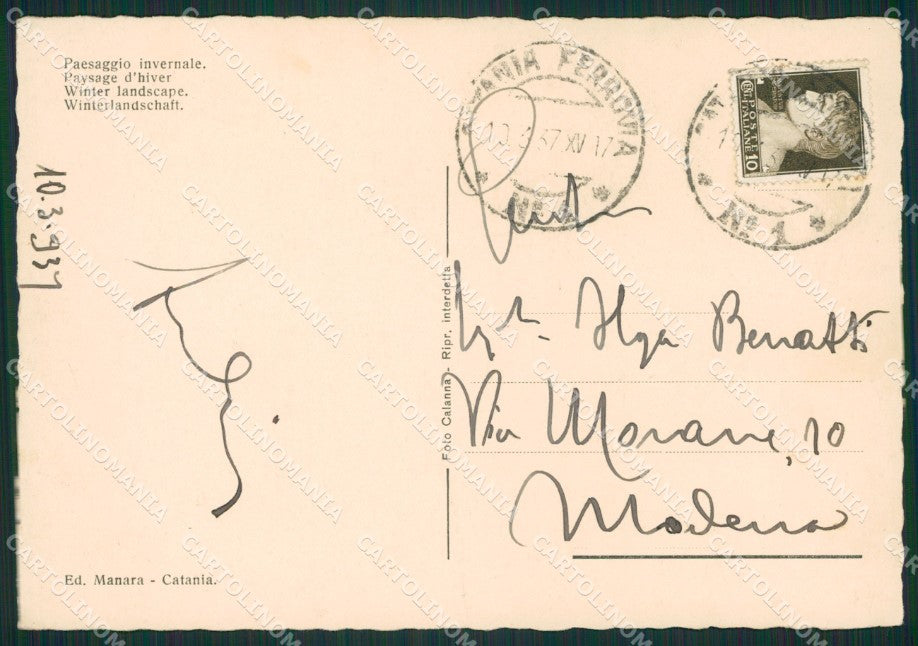 Paesaggio invernale.
Paysage d'hiver
Winter landscape.
Winterlandschaft.
10.3.937
CATANIA FERROVIA
10.3.37.XV 17
N. 1
POSTE ITALIANE 10
N. 1
Ilga Benatti
Via Morane, 10
Modena
Foto Calanna - Ripr. interdetta
Ed. Manara - Catania.
CARTOLINOMANIA